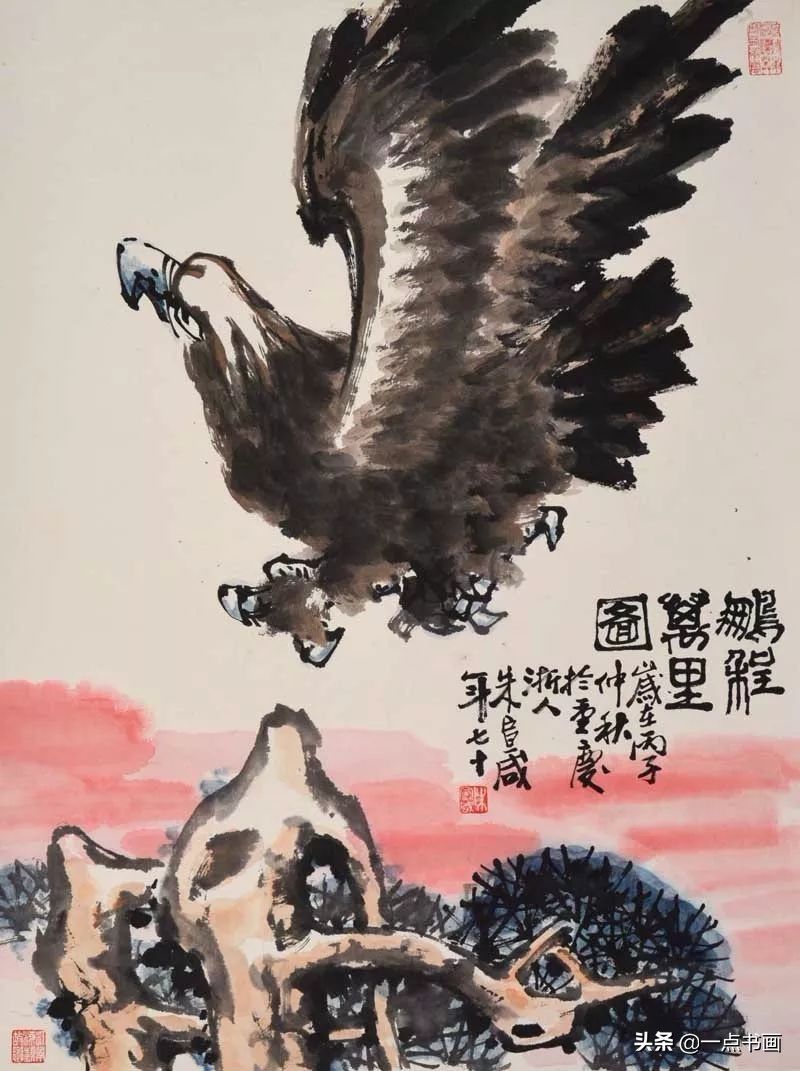 鵬程
萬里
圖
歲在丙子
仲秋
於重慶
浙人
朱宣咸
年七十
头条 @一点书画